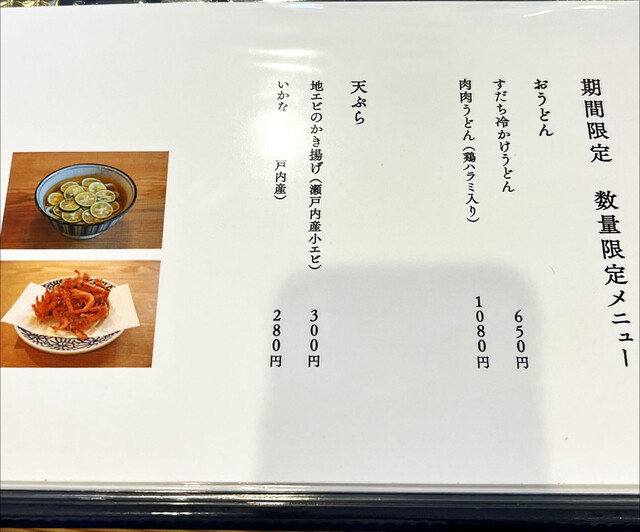 期間限定 数量限定メニュー
おうどん
すだち冷かけうどん 650円
肉肉うどん（鶏ハラミ入り） 1080円
天ぷら
地エビのかき揚げ（瀬戸内産小エビ） 300円
いかな 戸内産） 280円